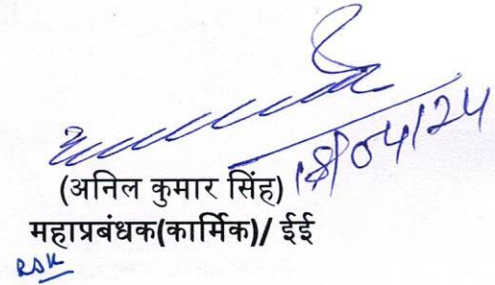 18/04/24
(अनिल कुमार सिंह)
महाप्रबंधक(कार्मिक)/ ईई
RSK